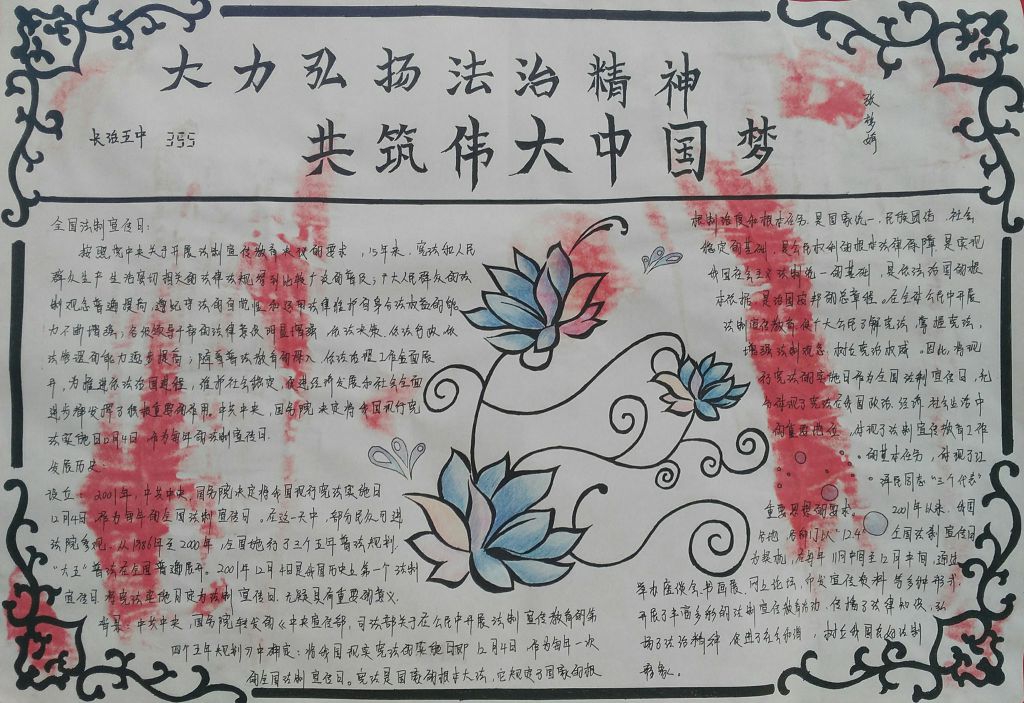 大力弘扬法治精神
共筑伟大中国梦
长治五中 355
张
婷
全国法制宣传日:
按照党中央关于开展法制宣传教育决议的要求,15年来,宪法和人民
群众生产生活密切相关的法律法规得到比较广泛的普及;广大人民群众的法
制观念普遍提高,遵纪守法的自觉性和运用法律维护自身合法权益的能
力不断增强;各级领导干部的法律意识明显增强,依法决策、依法行政、依
法管理的能力逐步提高;随着普法教育的深入,依法治理工作全面展
开,为推进依法治国进程,维护社会稳定,促进经济发展和社会全面
进步都发挥了积极重要的作用。中共中央、国务院决定将我国现行宪
法实施日12月4日,作为每年的法制宣传日。
发展历史:
设立:2001年,中共中央、国务院决定将我国现行宪法实施日
12月4日,作为每年的全国法制宣传日。在这一天中,部分民众可进
法院参观。从1986年至2000年,全国施行了三个五年普法规划,
普法在全国普遍展开。2001年12月4日是我国历史上第一个法制
宣传日,将宪法实施日定为法制宣传日,无疑具有重要的意义。
背景:中共中央、国务院转发的《中央宣传部、司法部关于在公民中开展法制宣传教育的第
四个五年规划》中确定:将我国现实宪法的实施日即12月4日,作为每年一次
的全国法制宣传日。宪法是国家的根本大法,它规定了国家的根
根制治度和根本任务,是国家统一、民族团结、社会
稳定的基础,是公民权利的根本法律保障,是实现
我国社会主义法制统一的基础,是依法治国的根
本依据,是治国安邦的总章程。在全体公民中开展
法制宣传教育,使广大公民了解宪法,掌握宪法,
增强法制观念,树立宪法权威。因此,将现
行宪法的实施日作为全国法制宣传日,充
分体现了宪法在我国政治、经济、社会生活中
的重要地位,体现了法制宣传教育工作
的基本任务,体现了江
泽民同志“三个代表”
重要思想的要求。 2001年以来,我国
各地、各部门以“12.4”全国法制宣传日
为契机,在每年11月中旬至12月中旬,通过
举办座谈会、书画展、网上论坛、印发宣传资料等多种形式,
开展了丰富多彩的法制宣传教育活动,传播了法律知识,弘
扬了法治精神,促进了社会和谐,树立我国良好法制
形象。